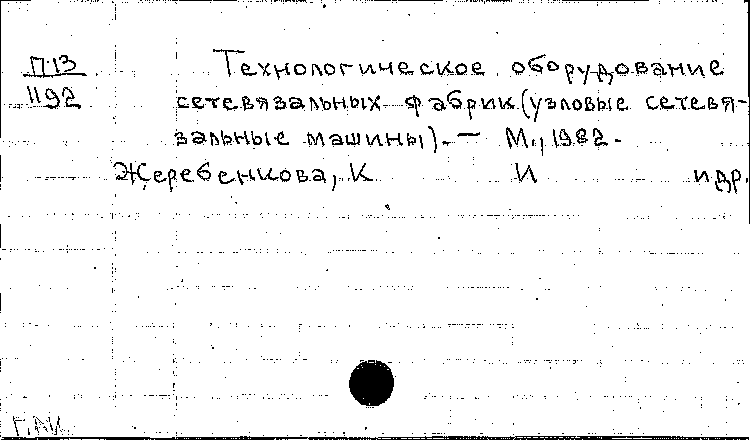 П13 Технологическое оборудование
1192 сетевязальных фабрик (узловые сетевя-
зальные машины). — М., 1982.
Жеребенкова, К И и др.